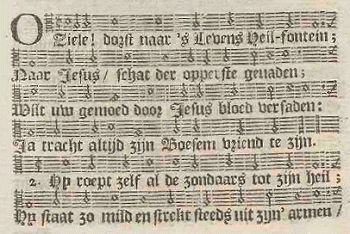 O Ziele! dorst naar 's Levens Heil-fontein;
Naar Jesus/ schat der opperste genaden;
Wilt uw gemoed door Jesus bloed versaden:
Ja tracht altijd zijn Boesem vriend te zijn.
2. Hy roept zelf al de zondaars tot zijn heil;
Hy staat zo mild en strekt steeds uit zyn' armen/